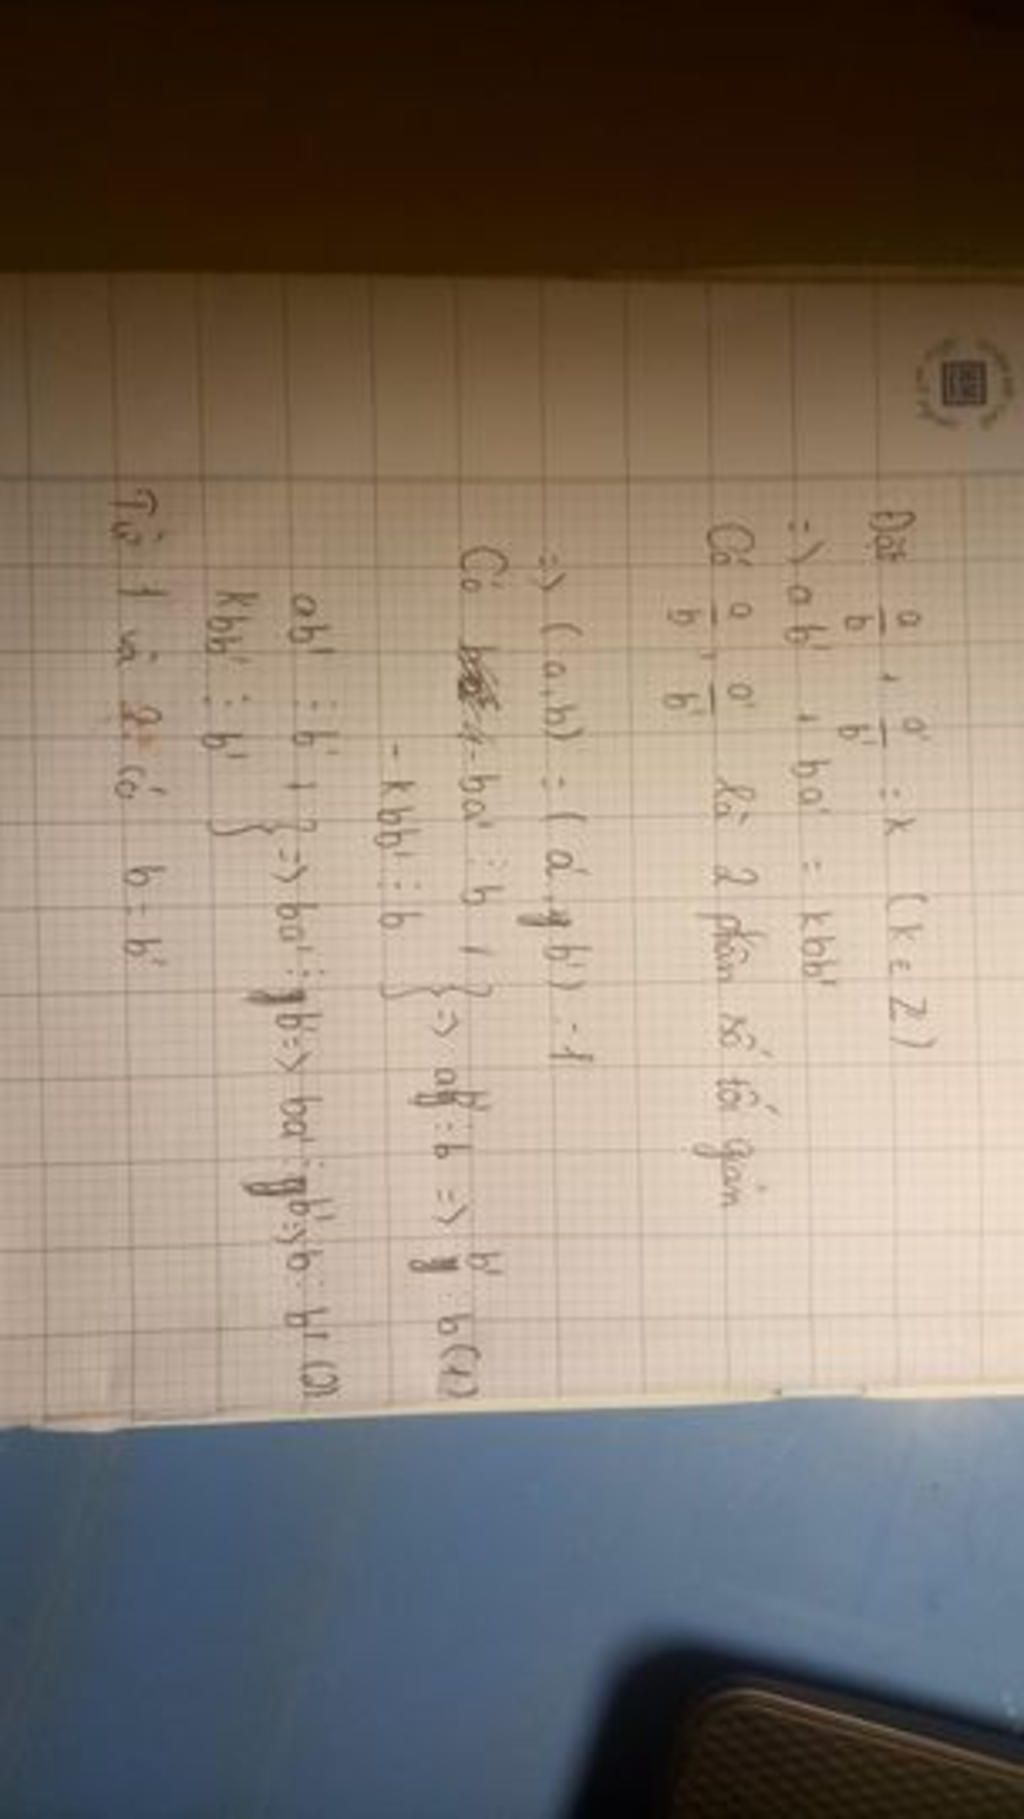 Đặt a/b + a'/b' = k (k ∈ Z)
=> ab' + ba' = kbb'
Có a/b, a'/b' là 2 phân số tối giản
=> (a,b) = (a', b') = 1
Có ba' ⋮ b
- kbb' ⋮ b } => ab' ⋮ b => b' ⋮ b (1)
ab' ⋮ b'
kbb' ⋮ b' } => ba' ⋮ b' => ba' ⋮ b' => b ⋮ b' (2)
Từ 1 và 2 có b = b'